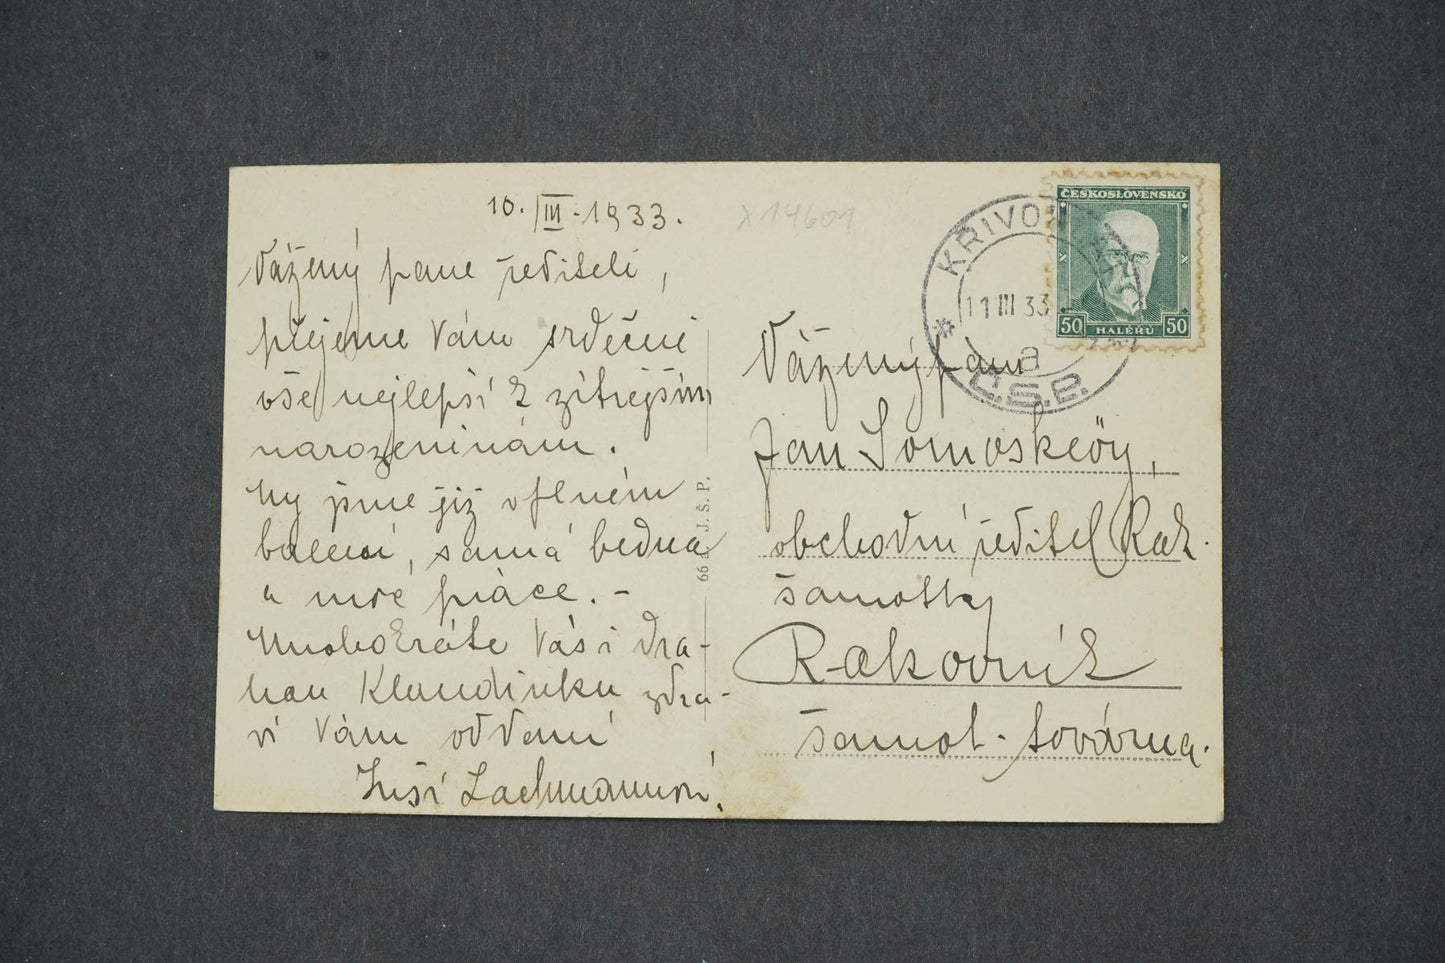 10. III. 1933.
x14601
Vážený pane řediteli,
přejeme Vám srdečně
vše nejlepší k zítřejším
narozeninám.
My jsme již v plném
balení, samá bedna
a moc práce. -
Mnohokráte Vás i dra-
hou Klaudinku zdra-
ví Vám oddaní
Lachmannovi.
66 J. Š. P.
KŘIVO
11 III 33
a
Č.S.P.
ČESKOSLOVENSKO
50 HALÉŘŮ 50
Vážený pan
Jan Somoskeöy,
obchodní ředitel Rak.
šamotky
Rakovník
šamot. továrna.